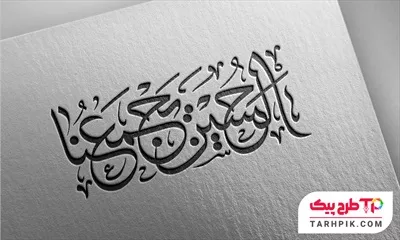 الحسین یجمعنا
طرح پیک
TARHPIK.COM